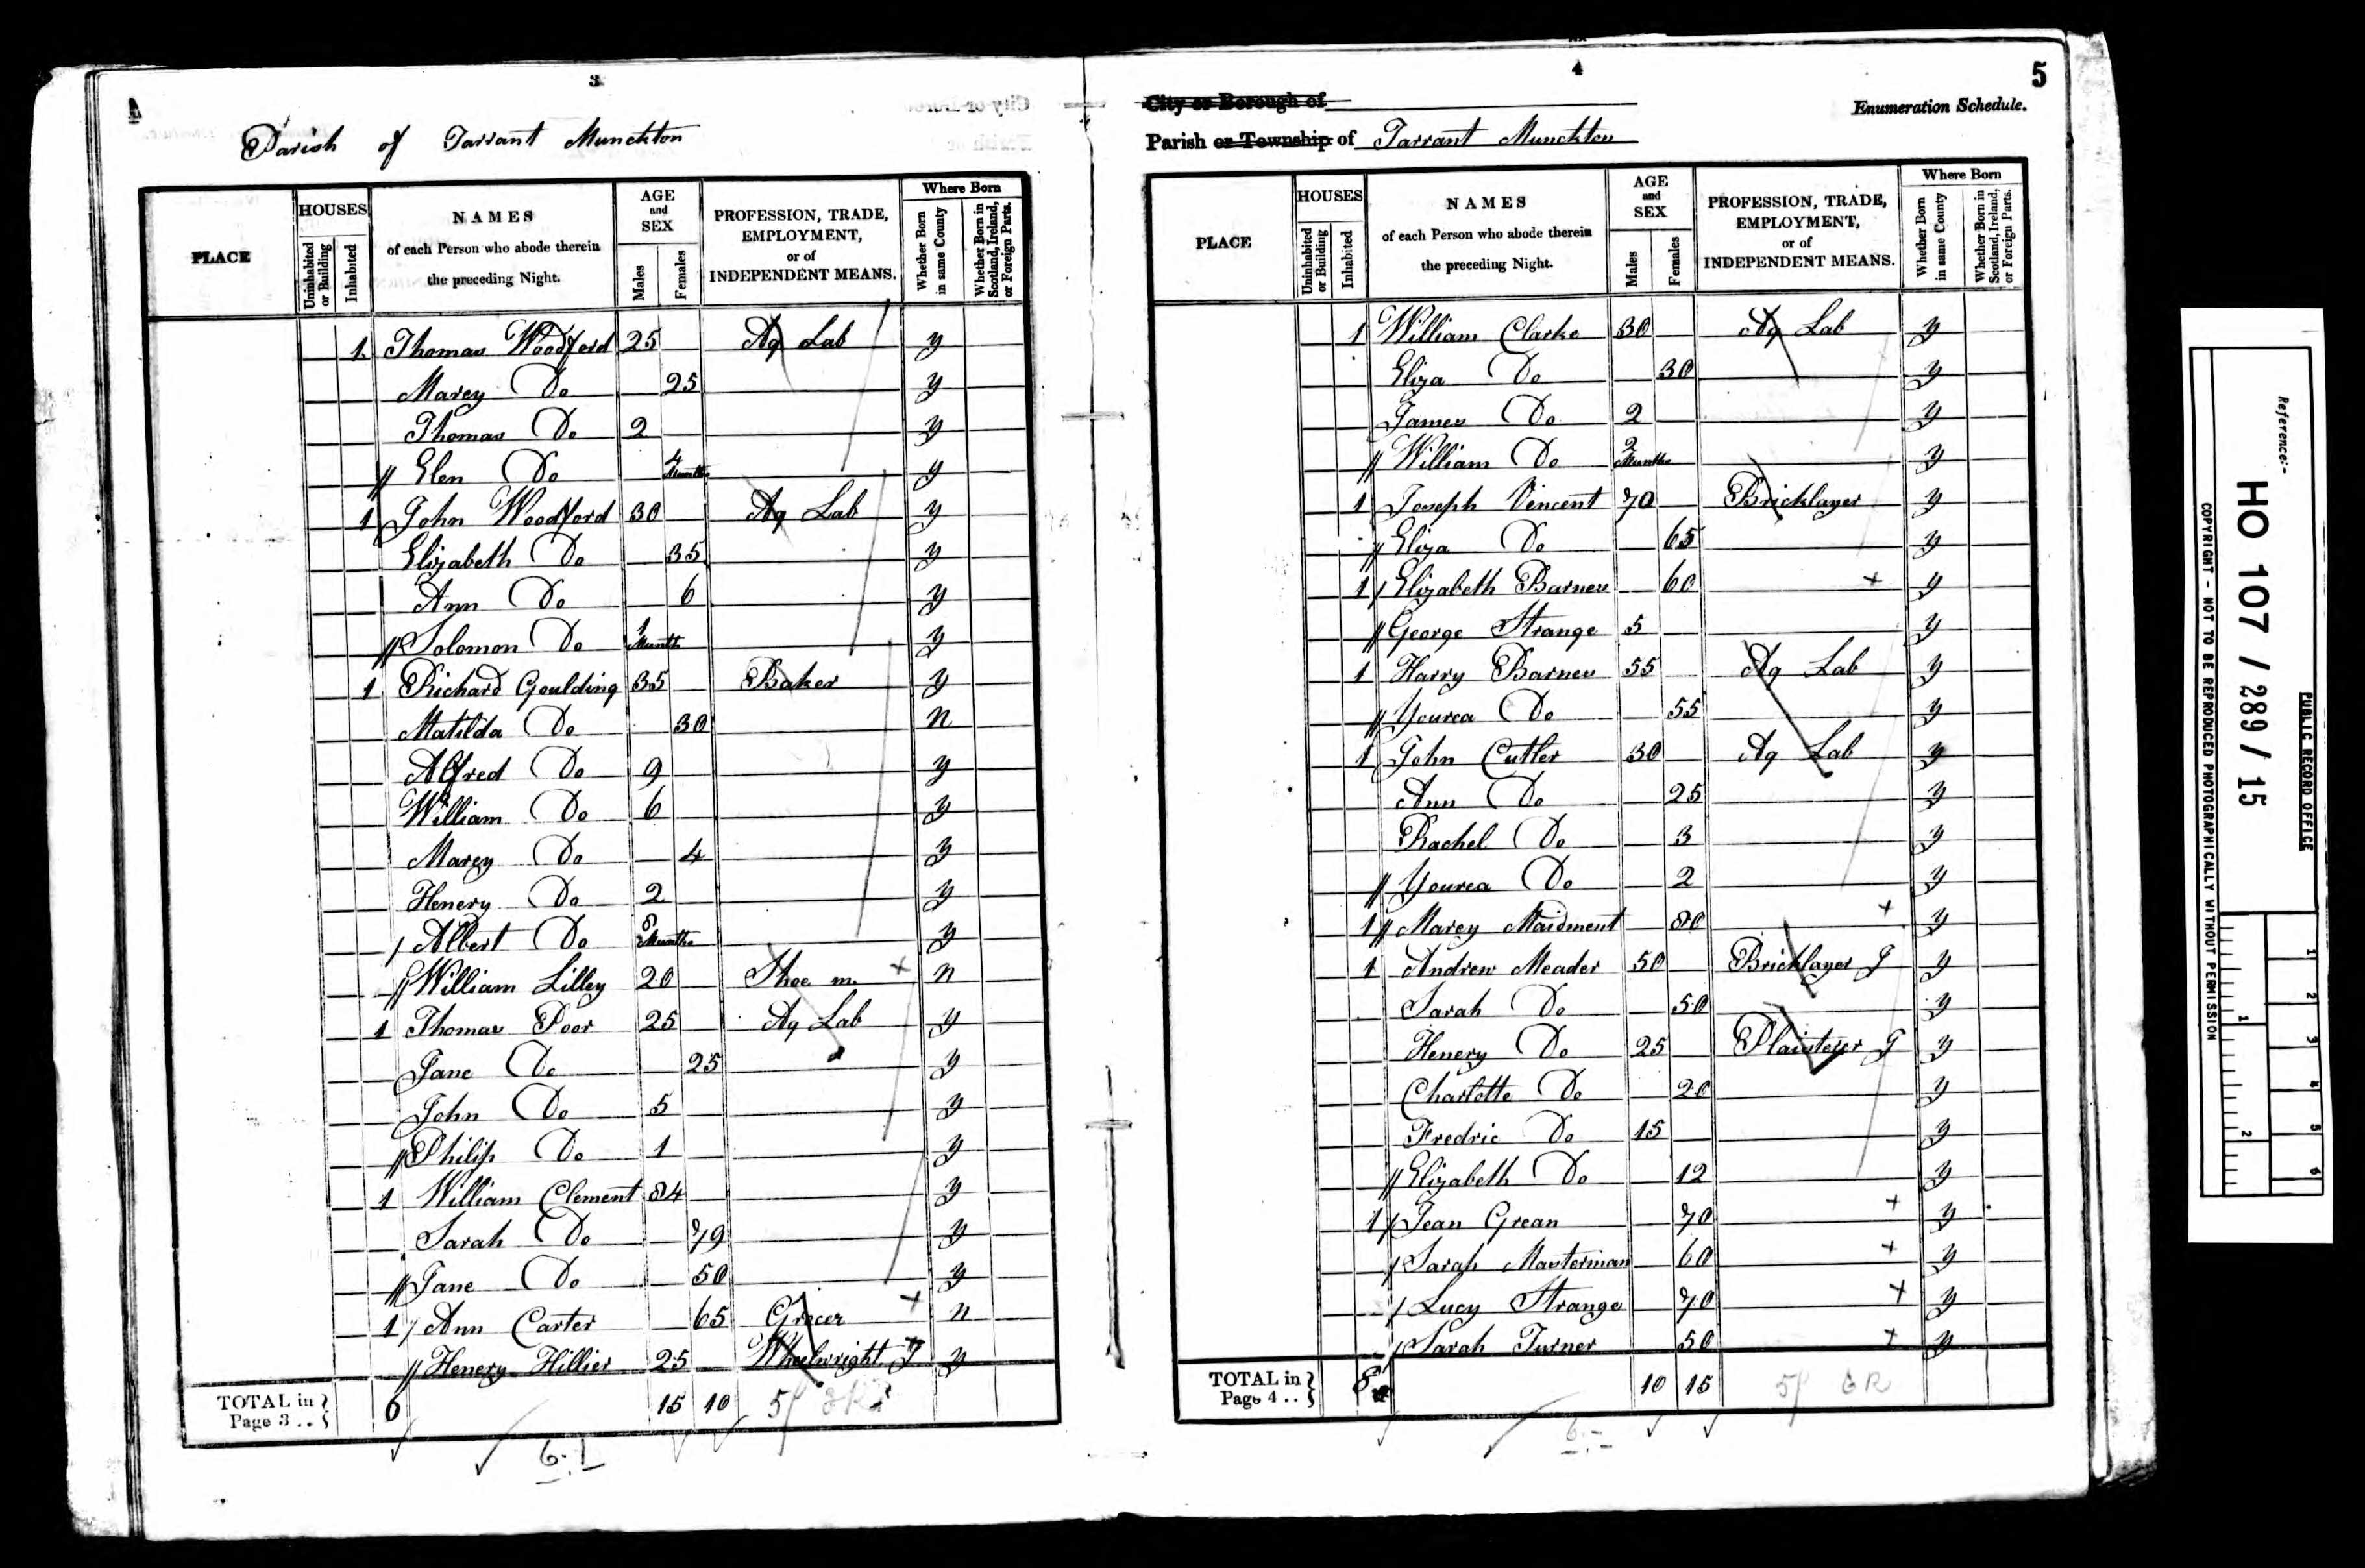 3
4
Parish of Tarrant Munckton
PLACE
HOUSES
Uninhabited or Building
Inhabited
NAMES
of each Person who abode therein
the preceding Night.
AGE
and
SEX
Males
Females
PROFESSION, TRADE,
EMPLOYMENT,
or of
INDEPENDENT MEANS.
Where Born
Whether Born in same County
Whether Born in Scotland, Ireland, or Foreign Parts.
1 Thomas Woodford 25 Ag Lab y
Marey Do 25 y
Thomas Do 2 y
// Elen Do 4 Munths y
1 John Woodford 30 Ag Lab y
Elizabeth Do 35 y
Ann Do 6 y
// Solomon Do 1 Munth y
1 Richard Goulding 35 Baker y
Matilda Do 30 n
Alfred Do 9 y
William Do 6 y
Marey Do 4 y
Henery Do 2 y
/ Albert Do 8 Munths y
// William Lilley 20 Shoe m. + n
1 Thomas Poor 25 Ag Lab y
Jane Do 25 y
John Do 5 y
// Philip Do 1 y
1 William Clement 84 y
Sarah Do 79 y
// Jane Do 50 y
1 / Ann Carter 65 Grocer + n
// Henery Hillier 25 Wheelwright J y
TOTAL in Page 3 .. } 6 15 10 5/
4
5
City or Borough of
Enumeration Schedule.
Parish or Township of Tarrant Munckton
PLACE
HOUSES
Uninhabited or Building
Inhabited
NAMES
of each Person who abode therein
the preceding Night.
AGE
and
SEX
Males
Females
PROFESSION, TRADE,
EMPLOYMENT,
or of
INDEPENDENT MEANS.
Where Born
Whether Born in same County
Whether Born in Scotland, Ireland, or Foreign Parts.
1 William Clarke 30 Ag Lab y
Eliza Do 30 y
James Do 2 y
// William Do 2 Munths y
1 Joseph Vincent 70 Bricklayer y
// Eliza Do 65 y
1 / Elizabeth Barnes 60 + y
// George Strange 5 y
1 Harry Barnes 55 Ag Lab y
// Yourea Do 55 y
1 John Cutler 30 Ag Lab y
Ann Do 25 y
Rachel Do 3 y
// Yourea Do 2 y
1 // Marey Maidment 80 + y
1 Andrew Meader 50 Bricklayer J y
Sarah Do 50 y
Henery Do 25 Plaisterer J y
Charlotte Do 20 y
Fredric Do 15 y
// Elizabeth Do 12 y
1 / Jean Grean 70 + y
/ Sarah Masterman 60 + y
/ Lucy Strange 70 + y
/ Sarah Turner 50 + y
TOTAL in Page 4 .. } 8 10 15 5/
Reference:-
HO 107 / 289 / 15
PUBLIC RECORD OFFICE
COPYRIGHT - NOT TO BE REPRODUCED PHOTOGRAPHICALLY WITHOUT PERMISSION
1 2 3 4 5 6
1 2